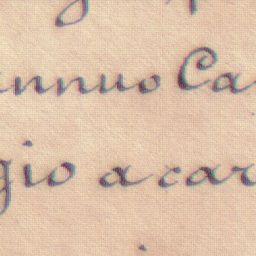 annuo Ca
gio a car